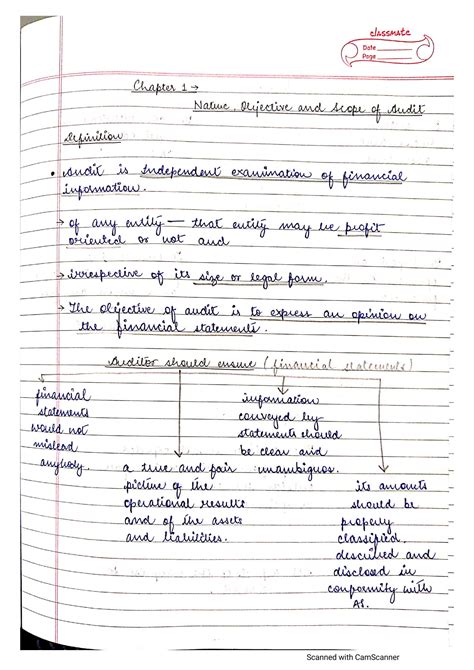 classmate
Date
Page
Chapter 1 →
Nature, Objective and Scope of Audit
Definition
• Audit is Independent examination of financial
information.
→ of any entity — that entity may be profit
oriented or not and
→ irrespective of its size or legal form.
→ The Objective of audit is to express an opinion on
the financial statements.
Auditor should ensure (financial statements)
financial
statements
would not
mislead
anybody.
a true and fair
picture of the
operational results
and of the assets
and liabilities.
information
conveyed by
statements should
be clear and
unambiguos.
its amounts
should be
propery
classified,
descried and
disclosed in
conformity with
AS.
Scanned with CamScanner